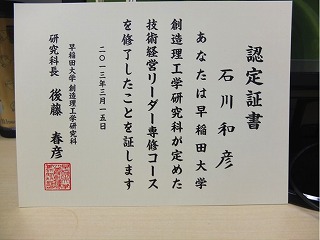 認定証書
石川和彦
あなたは早稲田大学
創造理工学研究科が定めた
技術経営リーダー専修コース
を修了したことを証します
二〇一三年三月一五日
早稲田大学 創造理工学研究科
研究科長 後藤 春彦